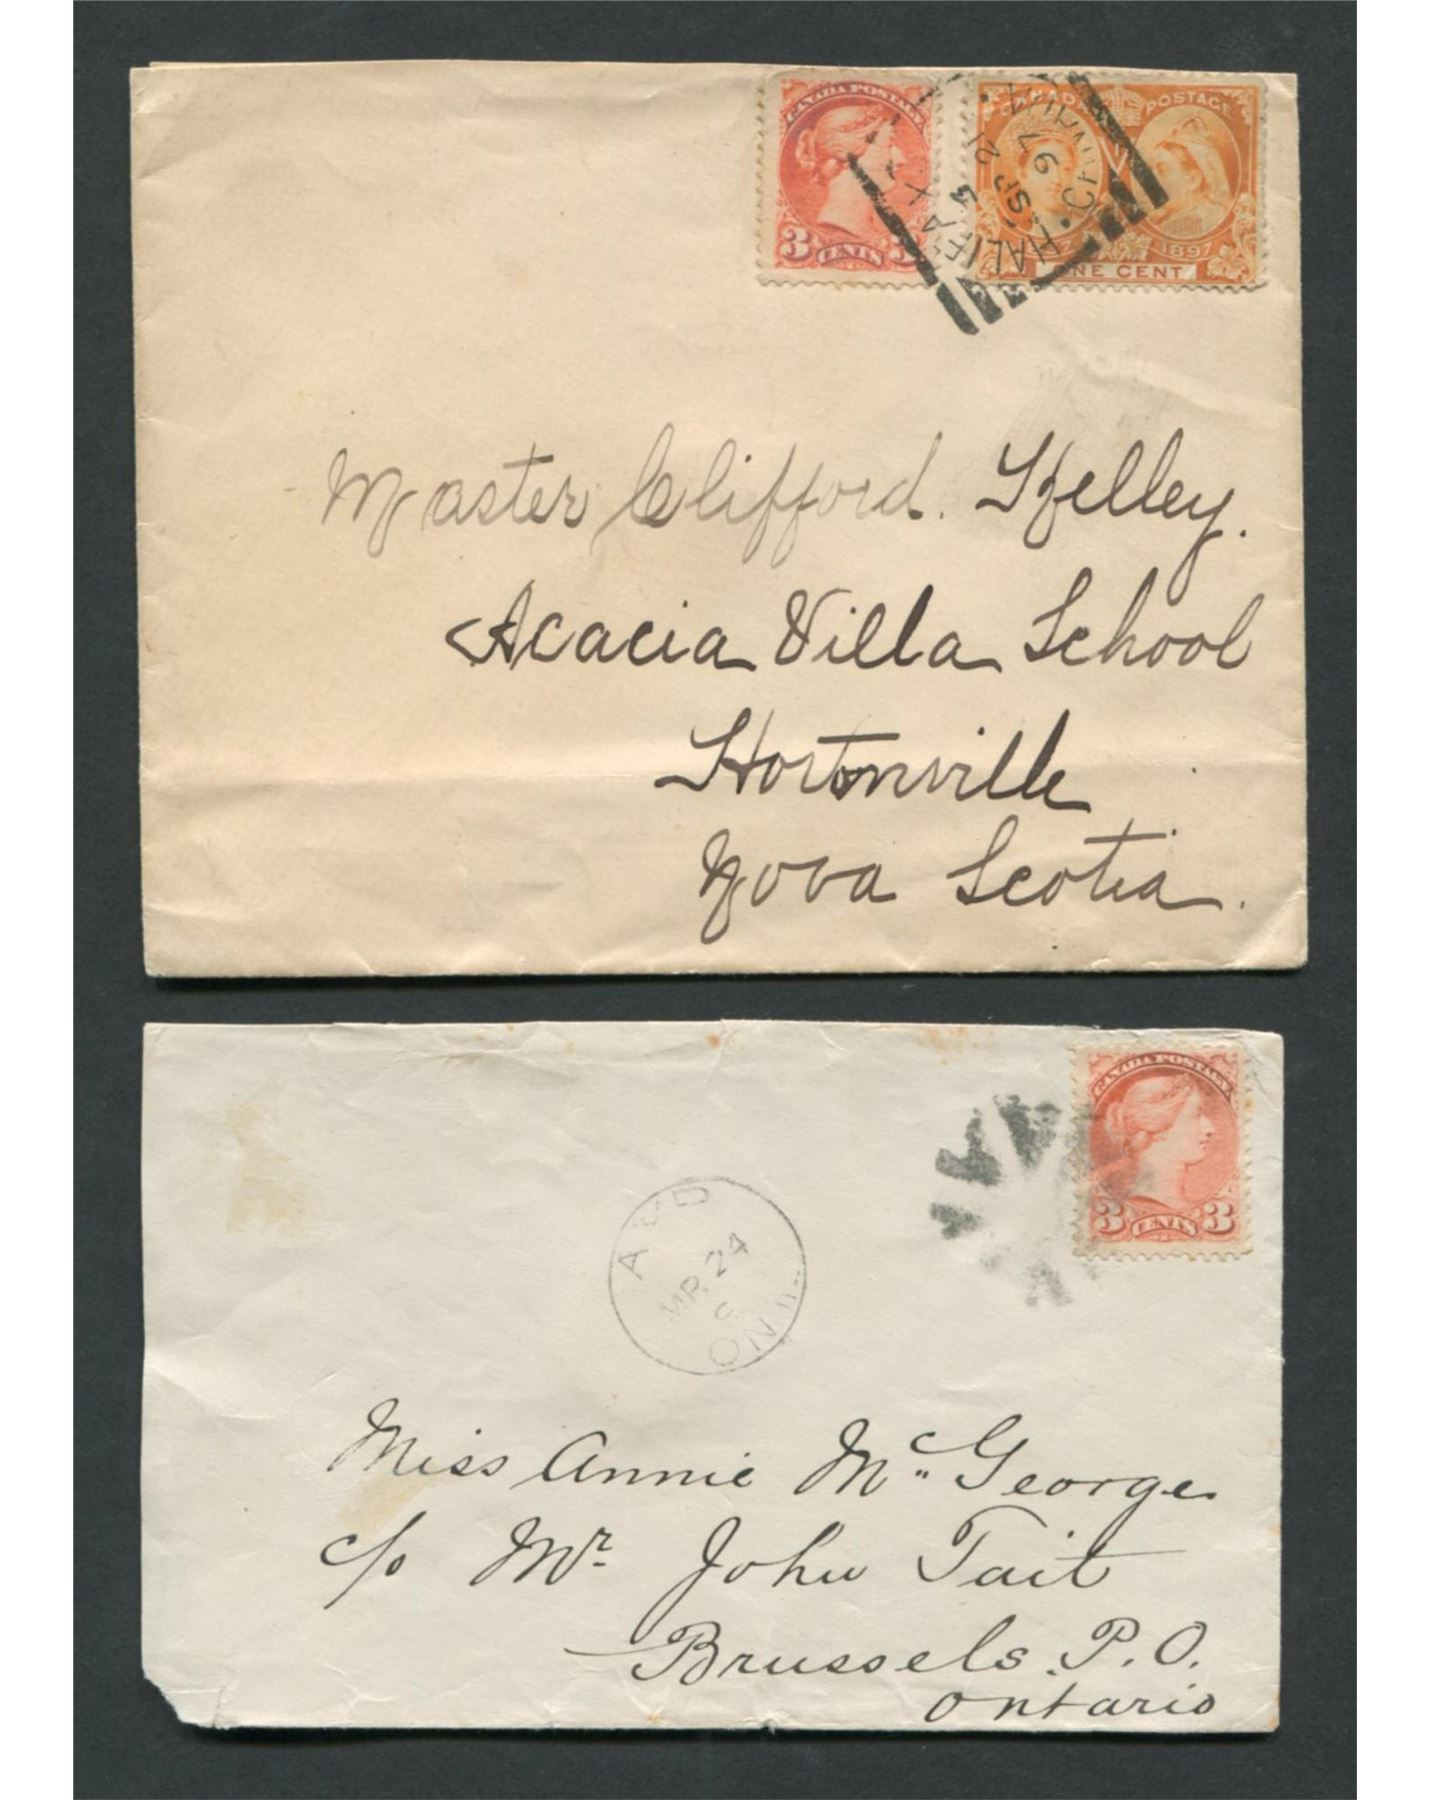 CANADA POSTAGE
3 CENTS 3
CANADA POSTAGE
1897
ONE CENT
HALIFAX
CANADA
SP 21
97
Master Clifford. Kelley.
Acacia Villa School
Hortonville
Nova Scotia.
CANADA POSTAGE
3 CENTS 3
MR 24
ONT
Miss Annie Mc George
c/o Mr. John Tait
Brussels. P.O.
Ontario